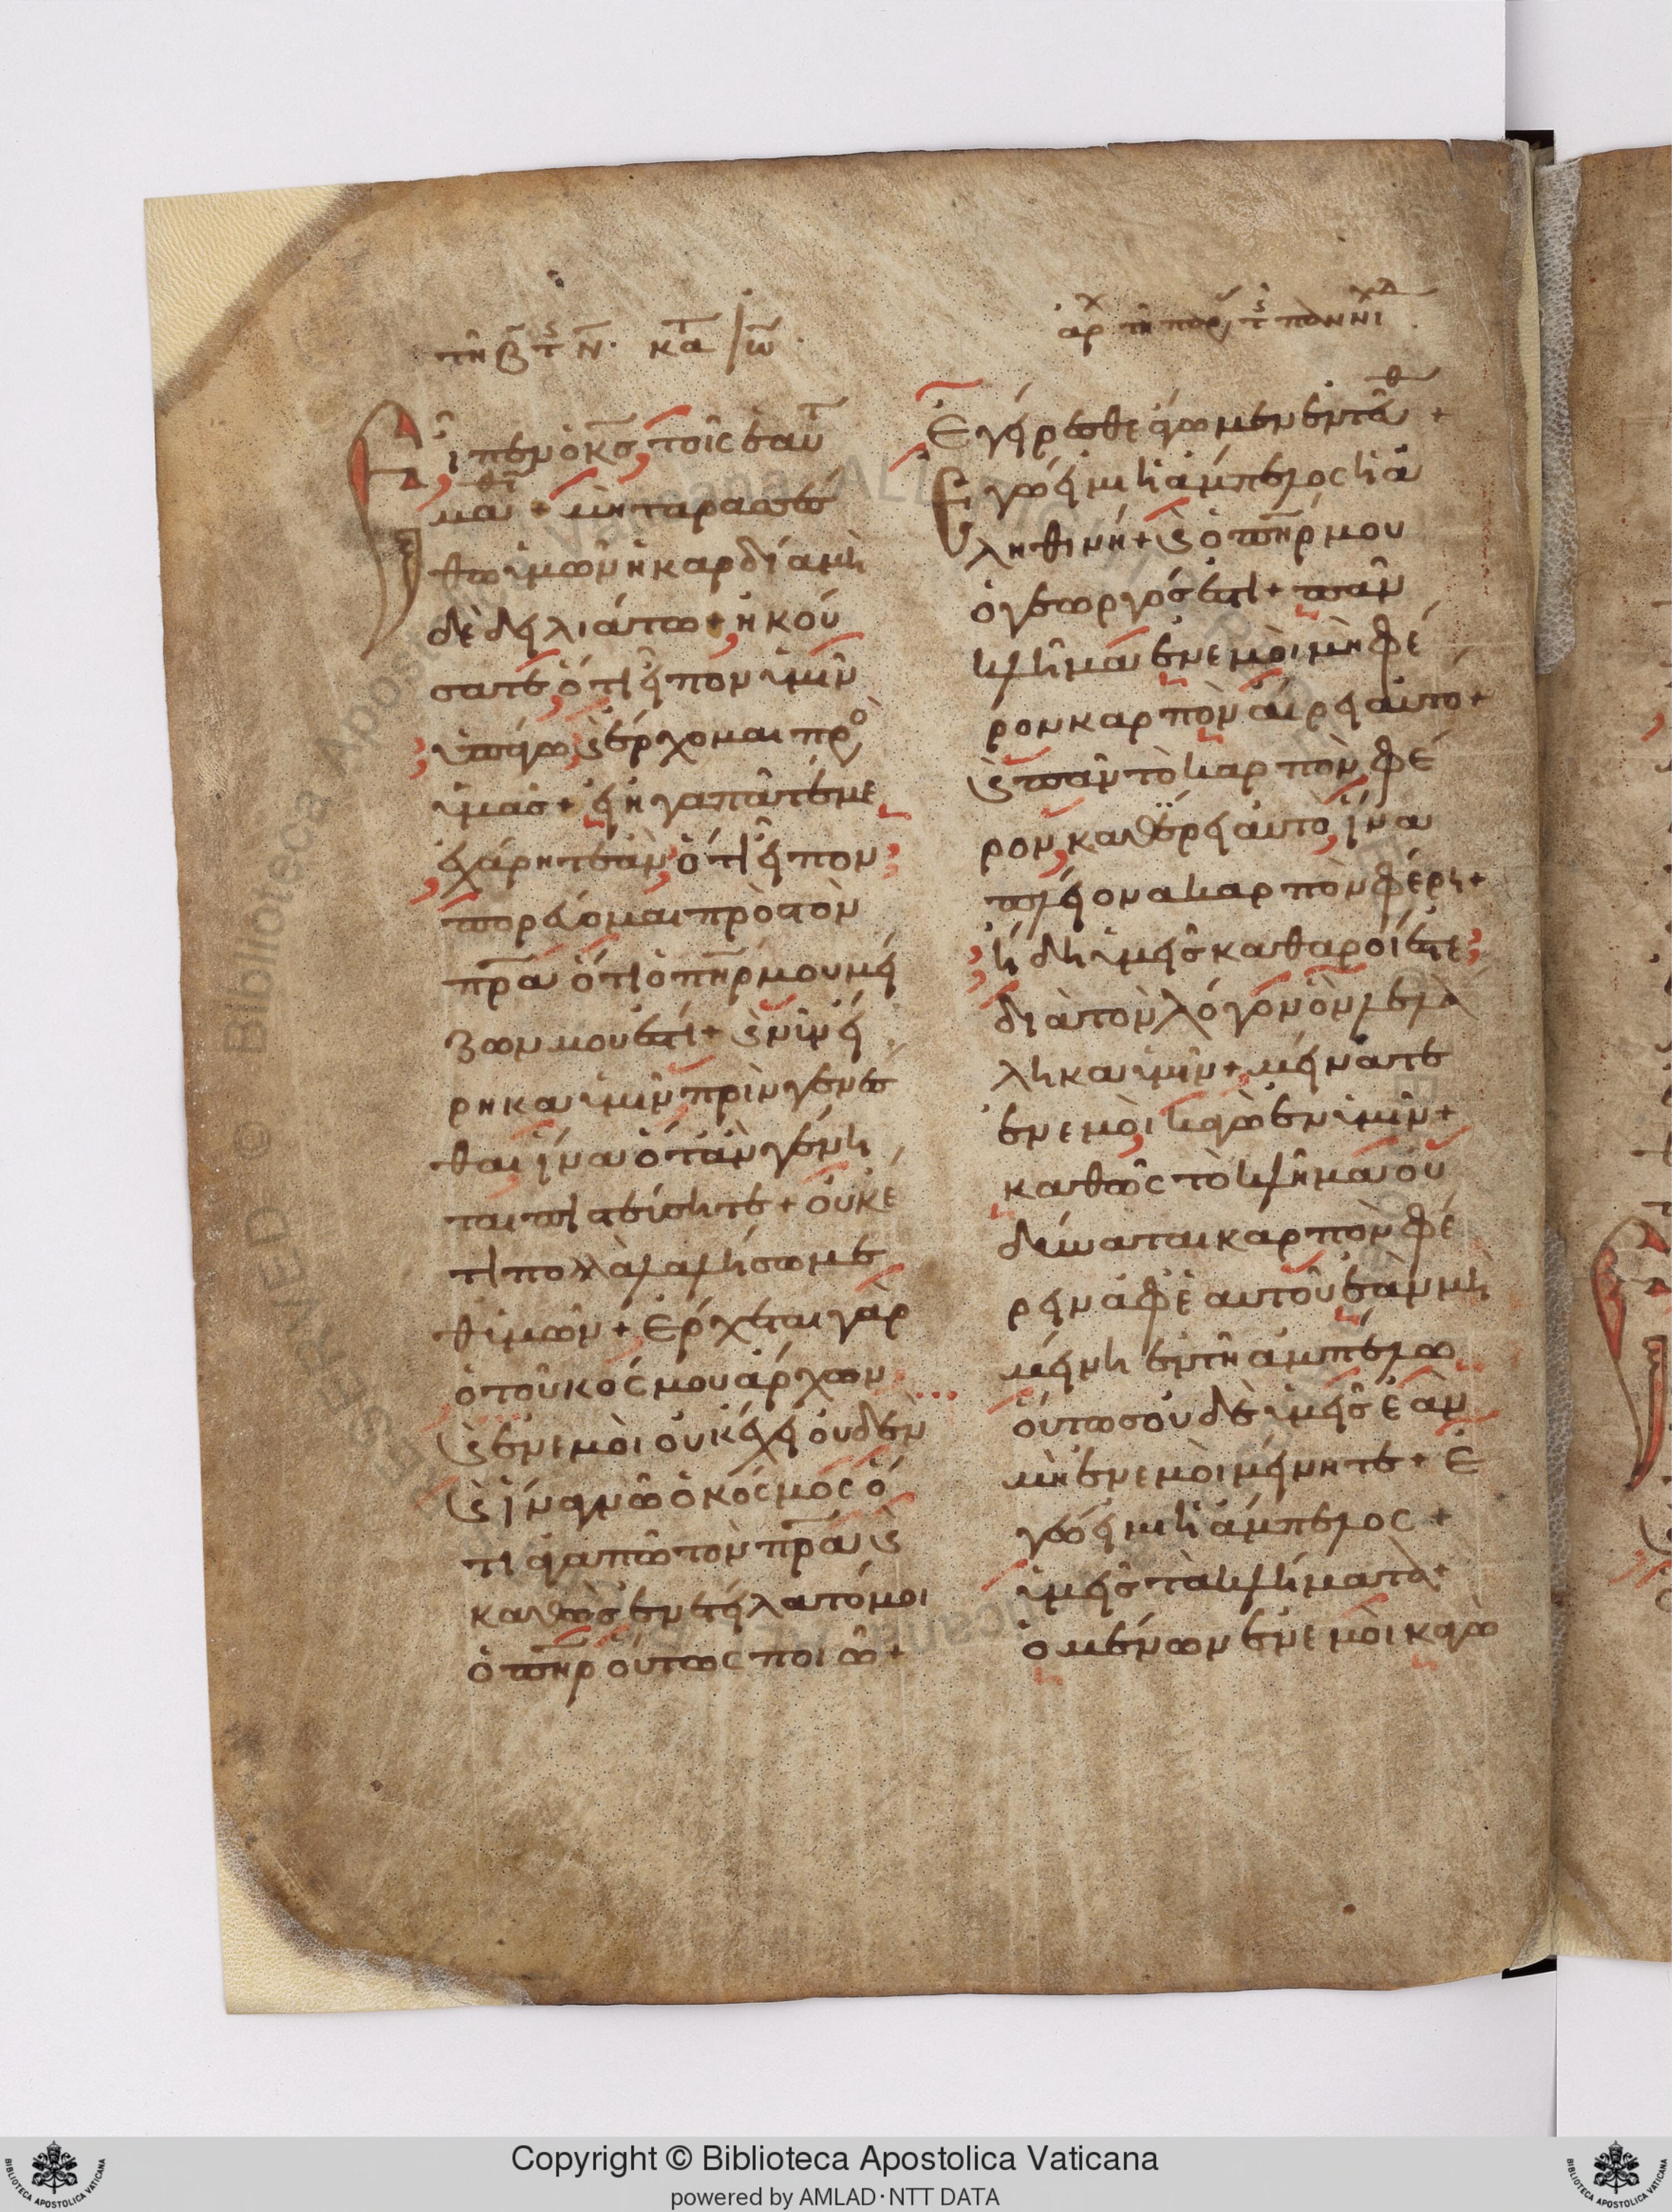 τῆ β τ ν̅. κ̅α̅ ἰω̅.
Εἶπεν ὁ κ̅ς̅ τοῖς ἑαυ̅
μαθ̅ + μὴ ταρασσέσ
θω ὑμῶν ἡ καρδία μὴ
δὲ δειλιάτω + ἠκού
σατε ὅτι εἶπον ὑμῖν
ὑπάγω ϗ ἔρχομαι πρὸ
ὑμᾶς + εἰ ἠγαπᾶτέ με
ἐχάρητε ἂν ὅτι εἶπον
πορεύομαι πρὸς τὸν
πρ̅α ὅτι ὁ πη̅ρ μου μεί
ζων μού ἐστι + ϗ νῦν εἴ
ρηκα ὑμῖν πρὶν γενέσ
θαι ἵνα ὅταν γένη
ται πιστεύσητε + οὐκέ
τι πολλὰ λαλήσω με
θ ὑμῶν + ἔρχεται γὰρ
ὁ τοῦ κόσμου ἄρχων
ϗ ἐν ἐμοὶ οὐκ ἔχει οὐδὲν
ϗ ἵνα γνῶ ὁ κόσμος ὅ
τι ἀγαπῶ τὸν πρ̅α ϗ
καθὼς ἐνετείλατό μοι
ὁ πη̅ρ οὕτως ποιῶ +
Ἐγείρεσθε ἄγωμεν ἐντεῦθ +
Ἐγώ εἰμι ἡ ἄμπελος ἡ ἀ
ληθινή + ϗ ὁ πη̅ρ μου
ὁ γεωργός ἐστι + πᾶν
κλῆμα ἐν ἐμοὶ μὴ φέ
ρον καρπὸν αἴρει αὐτό +
ϗ πᾶν τὸ καρπὸν φέ
ρον καθαίρει αὐτό ἵνα
πλείονα καρπὸν φέρη +
ἤδη ὑμεῖς καθαροί ἐστε
διὰ τὸν λόγον ὃν λελά
ληκα ὑμῖν + μείνατε
ἐν ἐμοὶ κἀγὼ ἐν ὑμῖν +
καθὼς τὸ κλῆμα οὐ
δύναται καρπὸν φέ
ρειν ἀφ ἑαυτοῦ ἐὰν μὴ
μείνη ἐν τῆ ἀμπέλω
οὕτως οὐδὲ ὑμεῖς ἐὰν
μὴ ἐν ἐμοὶ μείνητε + ἐ
γώ εἰμι ἡ ἄμπελος +
ὑμεῖς τὰ κλήματα +
ὁ μένων ἐν ἐμοὶ κἀγὼ
Copyright © Biblioteca Apostolica Vaticana
powered by AMLAD·NTT DATA